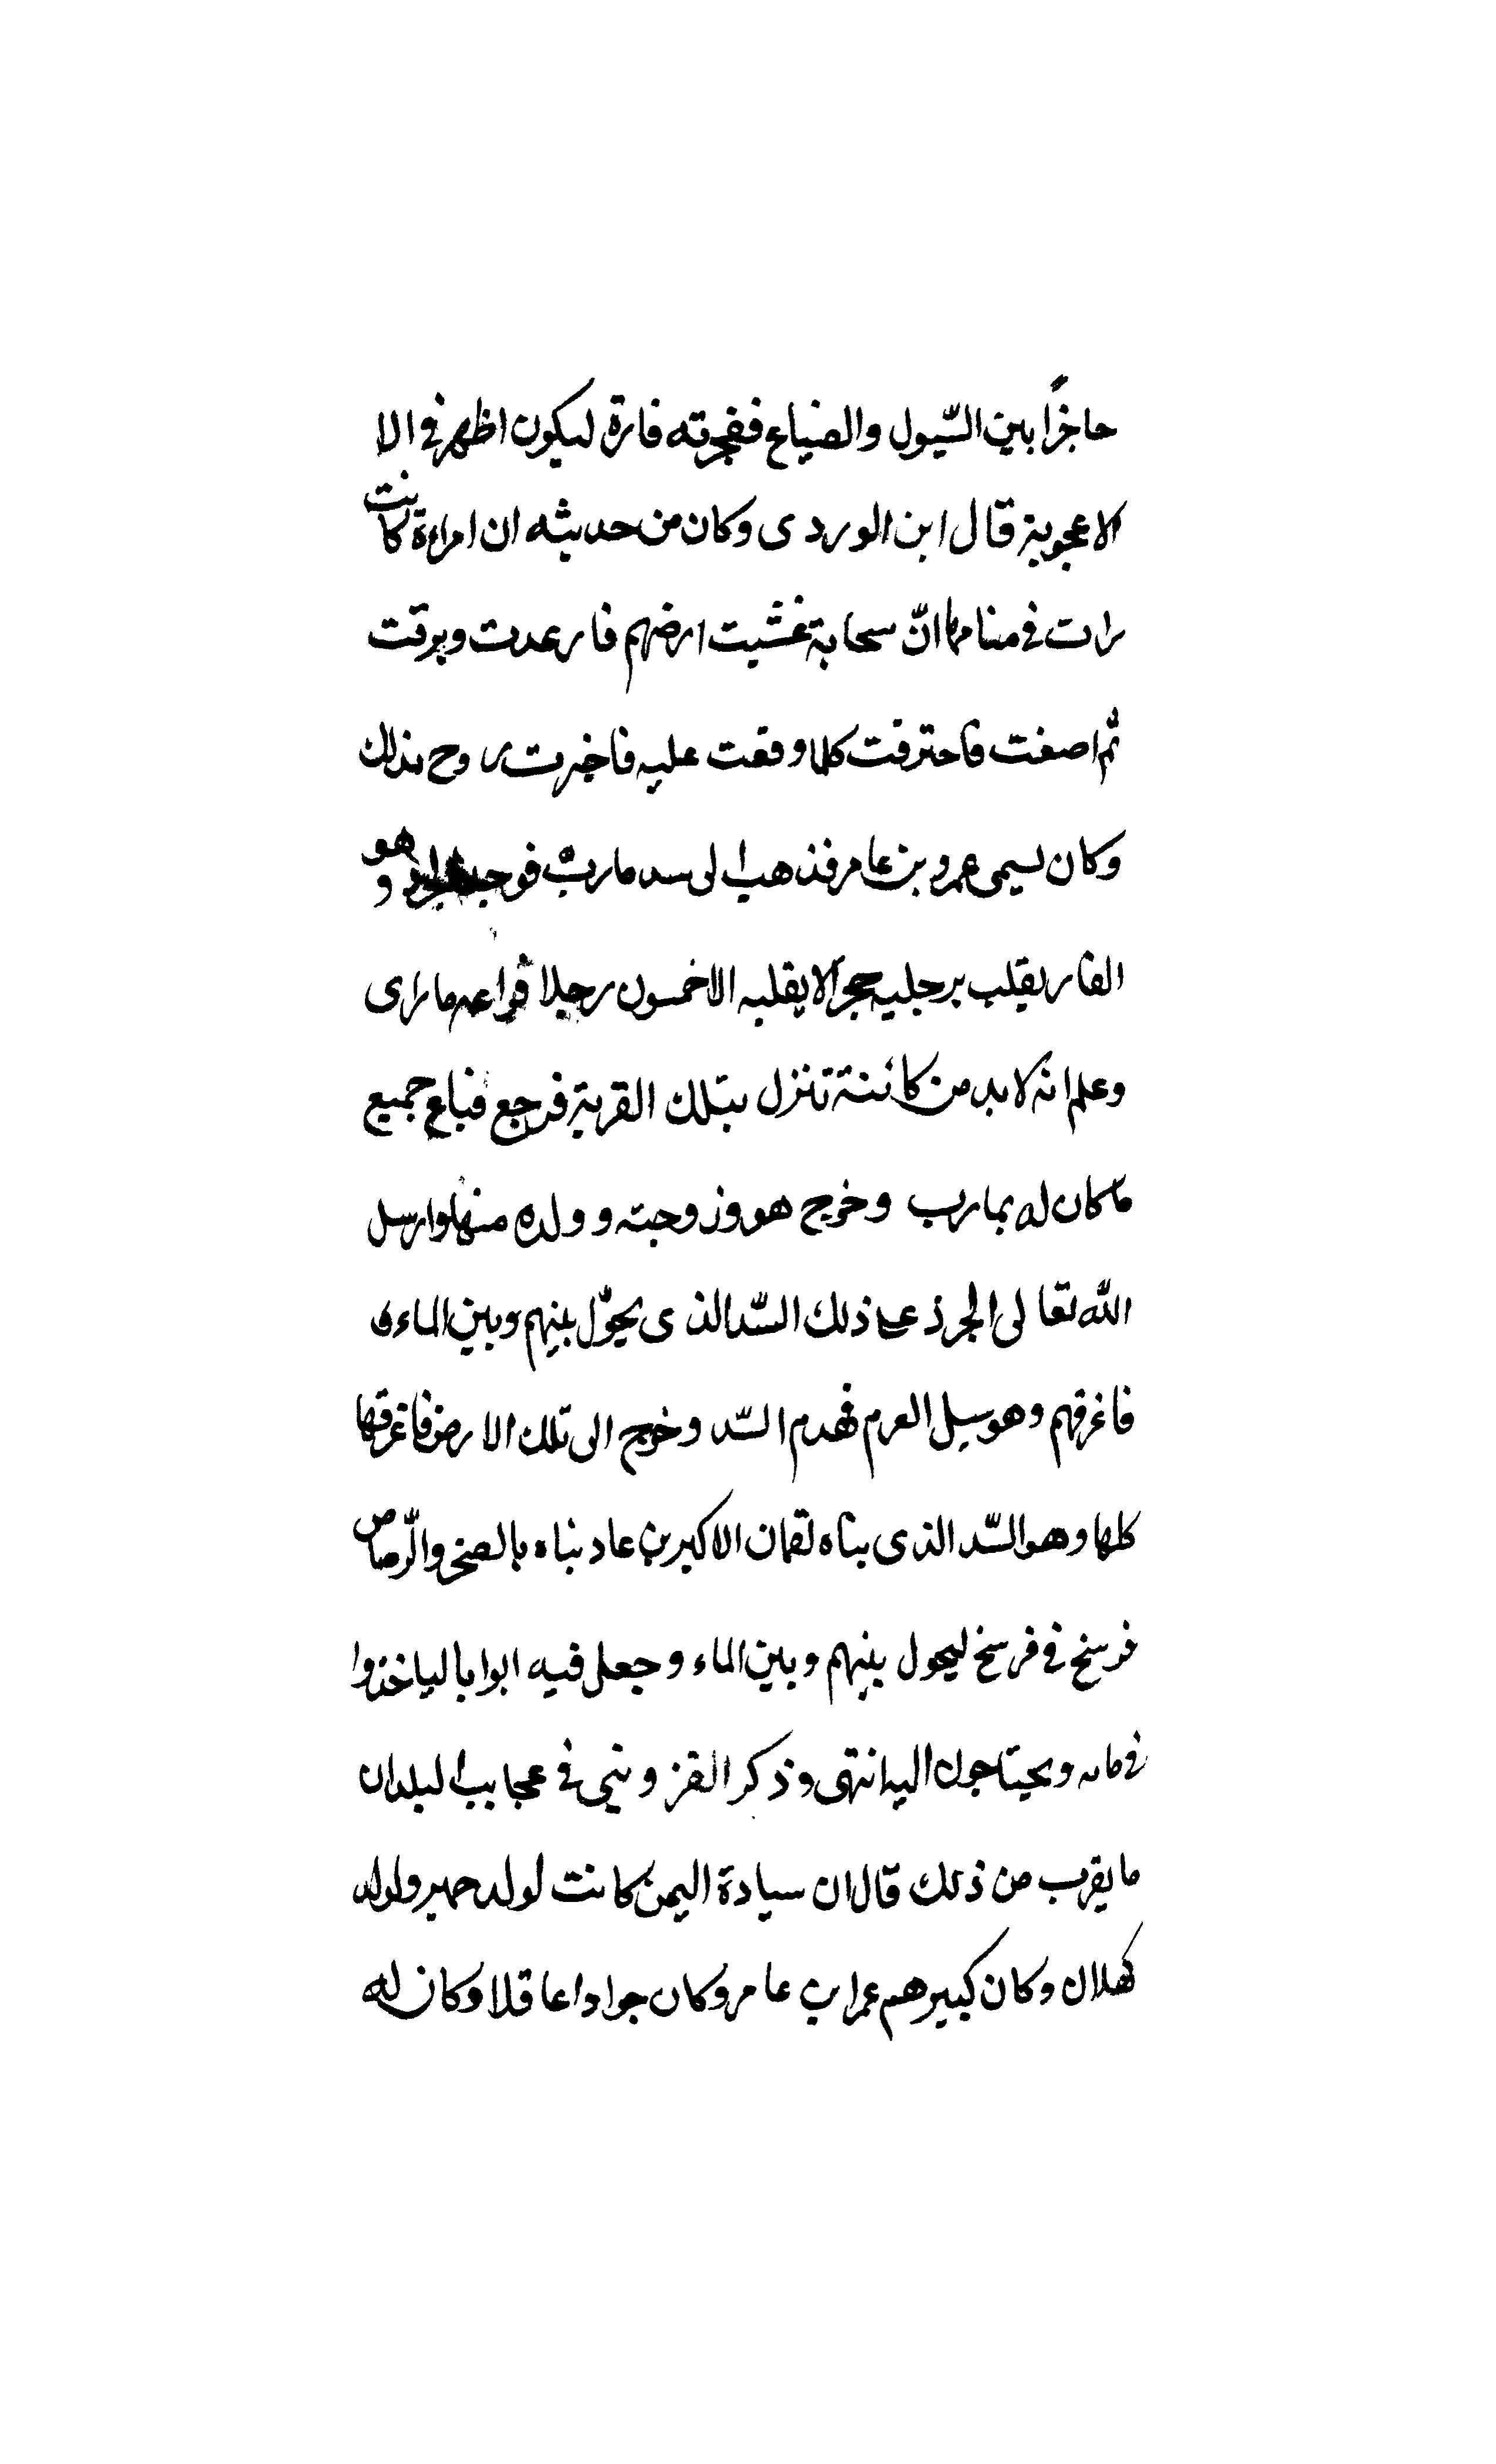 حاجزًا بين السّيول والضياع ففجرته فارة ليكون اظهر في الا
الاعجوبة قال ابن الوردى وكان من حديثه ان امراءة كانت
رات في منامها انّ سحابة غشيت ارضهم فارعدت وبرقت
ثم اصغت فاحترقت كلما وقعت عليه فاخبرت زوج بذلك
وكان ليسمى عمرو بن عامر فذهب الى سد مارب فوجد الجرذ وهو
الفار يقلب برجليه حجرا لا يقلبه الا خمسون رجلا فراعه ما راى
وعلم انه لا بد من كائنة تنزل بتلك القرية فرجع فباع جميع
ما كان له بمارب وخرج هو وزوجته وولده منها وارسل
الله تعالى الجرذ على ذلك السّد الذى يحوّل بينهم وبين الماء ف
فاغرقهم وهو سيل العرم فهدم السّد وخرج الى تلك الارض فاغرقها
كلها وهو السّد الذى بناه لقمان الاكبر بن عاد بناه بالصخر والرّصاص
فرسخ في فرسخ ليحول بينهم وبين الماء وجعل فيه ابوابا لياخذوا
في مائه ويحتاجون اليه انتهى وذكر القزويني في عجايب البلدان
ما يقرب من ذلك قال ان سيادة اليمن كانت لولد حمير ولولد
كهلان وكان كبيرهم عمرا بن عامر وكان جوادا عاقلا وكان له